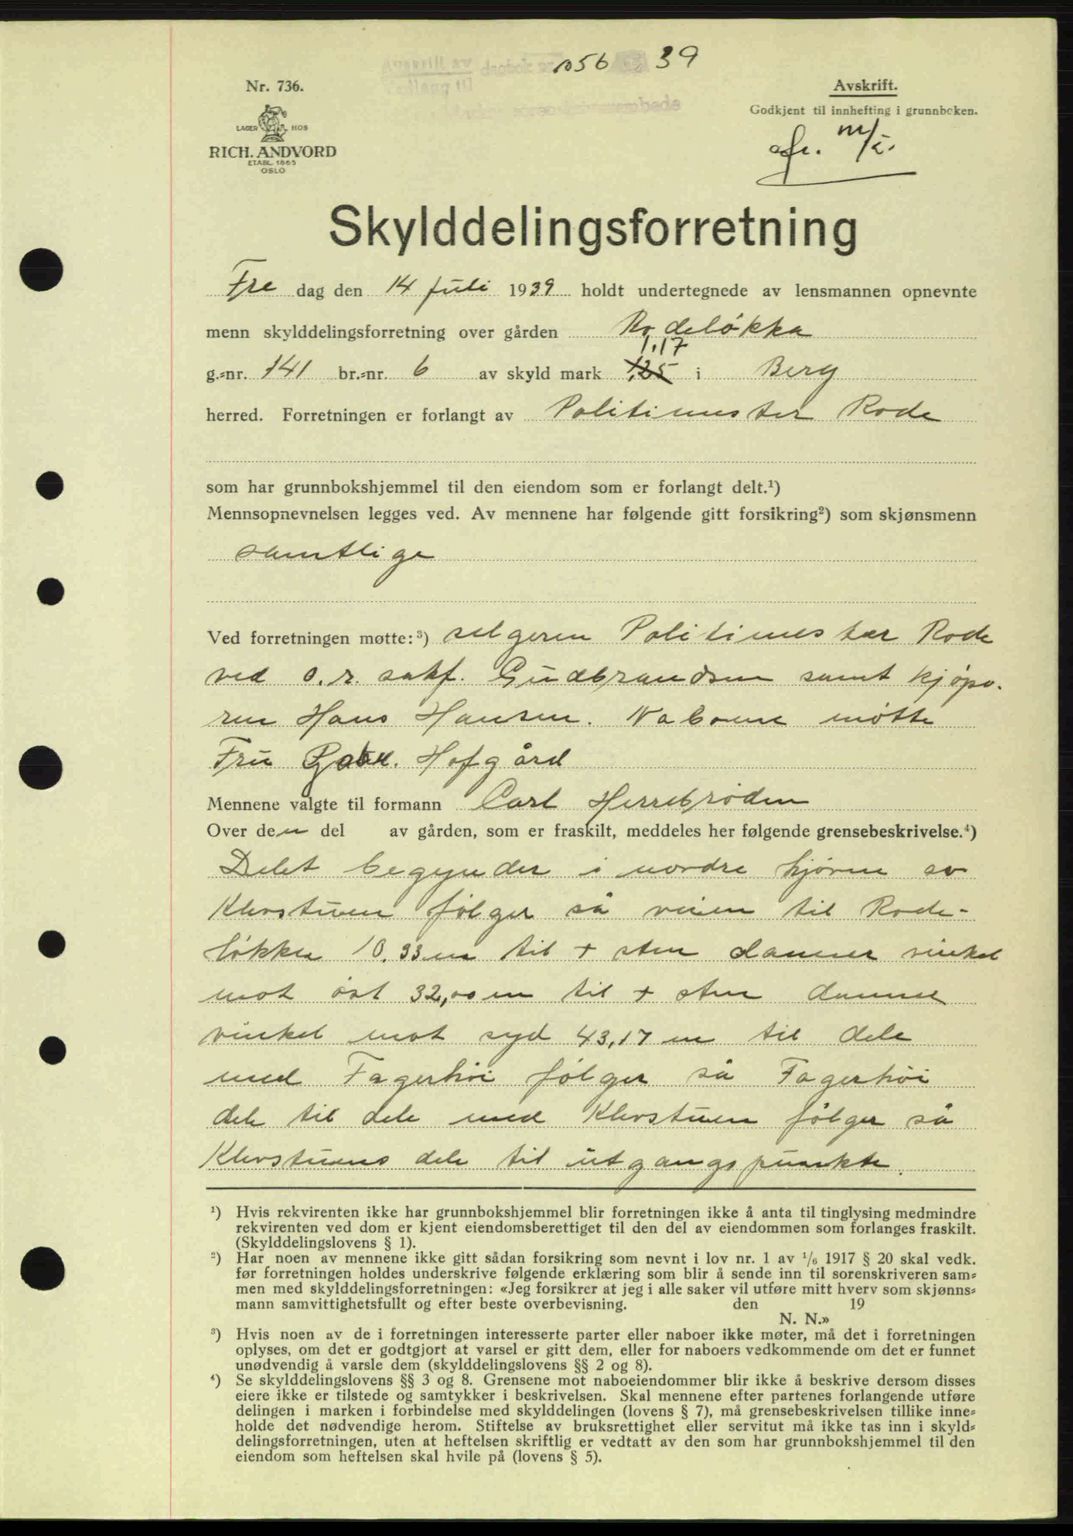 1056 39
Nr. 736.
LAGER HOS
RICH. ANDVORD
ETABL. 1865
OSLO
Avskrift.
Godkjent til innhefting i grunnboken.
Skylddelingsforretning
Fre dag den 14 juli 1939 holdt undertegnede av lensmannen opnevnte
menn skylddelingsforretning over gården Rodeløkka
1.17
g.=nr. 141 br.=nr. 6 av skyld mark 1,25 i Berg
herred. Forretningen er forlangt av Politimester Rode
som har grunnbokshjemmel til den eiendom som er forlangt delt.¹)
Mennsopnevnelsen legges ved. Av mennene har følgende gitt forsikring²) som skjønsmenn
samtlige
Ved forretningen møtte:³) selgeren Politimester Rode
ved o.r. sakf. Gudbrandsen samt kjøpe-
ren Hans Hansen. Naboene møtte
Fru Hofgård
Mennene valgte til formann Carl Herrebrøden
Over den del av gården, som er fraskilt, meddeles her følgende grensebeskrivelse.⁴)
Delet begynder i nordre hjørne av
Klevstuen følger så veien til Rode-
løkken 10.33 m til + sten danner vinkel
mot øst 32,00 m til + sten danner
vinkel mot syd 43,17 m til dele
med Fagerhøi følger så Fagerhøi
dele til dele med Klevstuen følger så
Klevstuens dele til utgangspunkte.
¹) Hvis rekvirenten ikke har grunnbokshjemmel blir forretningen ikke å anta til tinglysing medmindre
rekvirenten ved dom er kjent eiendomsberettiget til den del av eiendommen som forlanges fraskilt.
(Skylddelingslovens § 1).
²) Har noen av mennene ikke gitt sådan forsikring som nevnt i lov nr. 1 av 1/6 1917 § 20 skal vedk.
før forretningen holdes underskrive følgende erklæring som blir å sende inn til sorenskriveren sam=
men med skylddelingsforretningen: «Jeg forsikrer at jeg i alle saker vil utføre mitt hverv som skjønns=
mann samvittighetsfullt og efter beste overbevisning. den 19
N. N.»
³) Hvis noen av de i forretningen interesserte parter eller naboer ikke møter, må det i forretningen
oplyses, om det er godtgjort at varsel er gitt dem, eller for naboers vedkommende om det er funnet
unødvendig å varsle dem (skylddelingslovens §§ 2 og 8).
⁴) Se skylddelingslovens §§ 3 og 8. Grensene mot naboeiendommer blir ikke å beskrive dersom disses
eiere ikke er tilstede og samtykker i beskrivelsen. Skal mennene efter partenes forlangende utføre
delingen i marken i forbindelse med skylddelingen (lovens § 7), må grensebeskrivelsen tillike inne=
holde det nødvendige herom. Stiftelse av bruksrettighet eller servitut må ikke tas inn i skyld=
delingsforretningen, uten at heftelsen skriftlig er vedtatt av den som har grunnbokshjemmel til den
eiendom som heftelsen skal hvile på (lovens § 5).